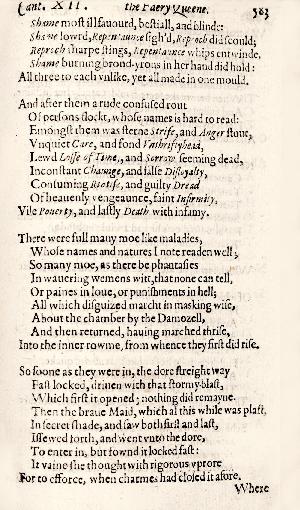 Cant. XII. the Faery Queene. 583
Shame most ill fauourd, bestiall, and blinde:
Shame lowrd, Repentaunce sigh'd, Reproch did scould;
Reproch sharpe stings, Repentance whips entwinde,
Shame burning brond-yrons in her hand did hold:
All three to each vnlike, yet all made in one mould.
And after them a rude confused rout
Of persons flockt, whose names is hard to read:
Emongst them was sterne Strife, and Anger stout,
Vnquiet Care, and fond Vnthriftyhead,
Lewd Losse of Time, and Sorrow seeming dead,
Inconstant Chaunge, and false Disloyalty,
Consuming Riotise, and guilty Dread
Of heauenly vengeaunce, faint Infirmity,
Vile Pouerty, and lastly Death with infamy.
There were full many moe like maladies,
Whose names and natures I note readen well;
So many moe, as there be phantasies
In wauering wemens witt, that none can tell,
Or paines in loue, or punishments in hell;
All which disguized marcht in masking wise,
About the chamber by the Damozell,
And then returned, hauing marched thrise,
Into the inner rowme, from whence they first did rise.
So soone as they were in, the dore streight way
Fast locked, driuen with that stormy blast,
Which first it opened; nothing did remayne.
Then the braue Maid, which al this while was plast,
In secret shade, and saw both first and last,
Issewed forth, and went vnto the dore,
To enter in, but fownd it locked fast:
It vaine she thought with rigorous vprore
For to efforce, when charmes had closed it afore.
Where